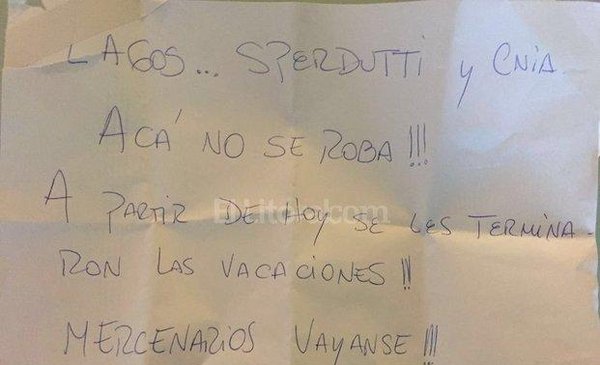 LAGOS... SPERDUTTI y CNIA.
ACÁ NO SE ROBA!!!
A PARTIR DE HOY SE LES TERMINA-
RON LAS VACACIONES!!
MERCENARIOS VAYANSE!!!
El Litoral.com